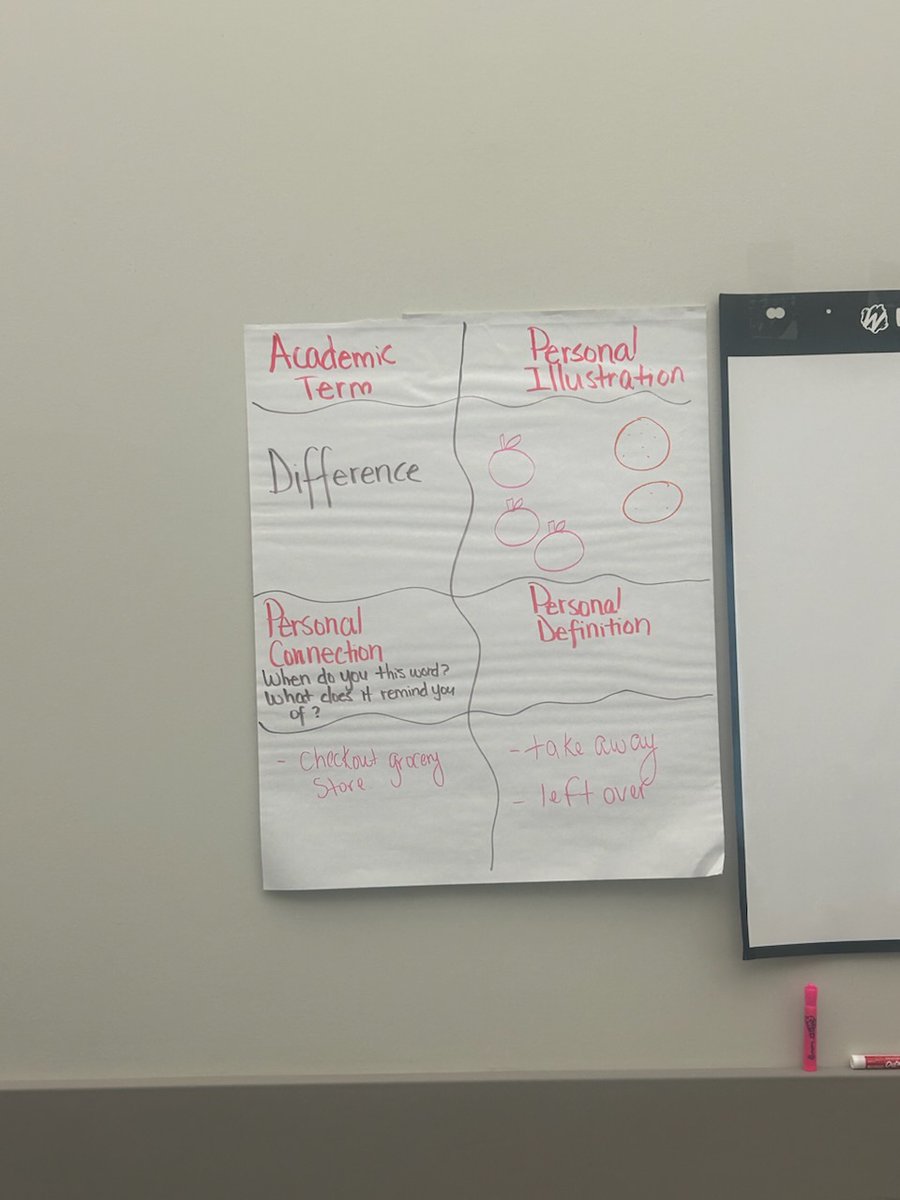 Academic
Term
Personal
Illustration
Difference
Personal
Connection
When do you this word?
What does it remind you
of?
- Checkout grocery
Store
Personal
Definition
- take away
- left over